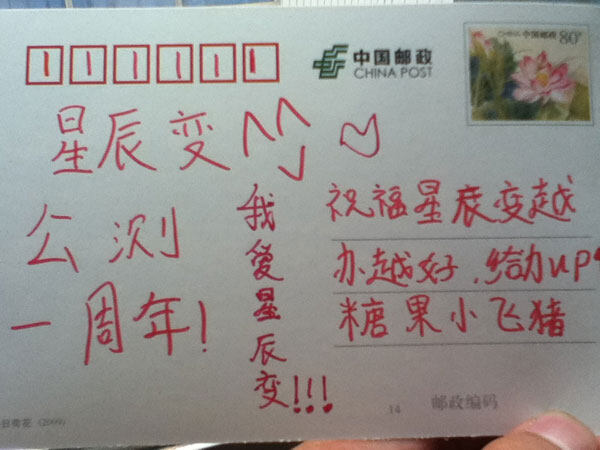 1 1 1 1 1 1
中国邮政
CHINA POST
中国邮政
80分
星辰变
公测
一周年!
我爱星辰变!!!
祝福星辰变越
办越好,给力up
糖果小飞猪
14
邮政编码
日荷花 (2009)